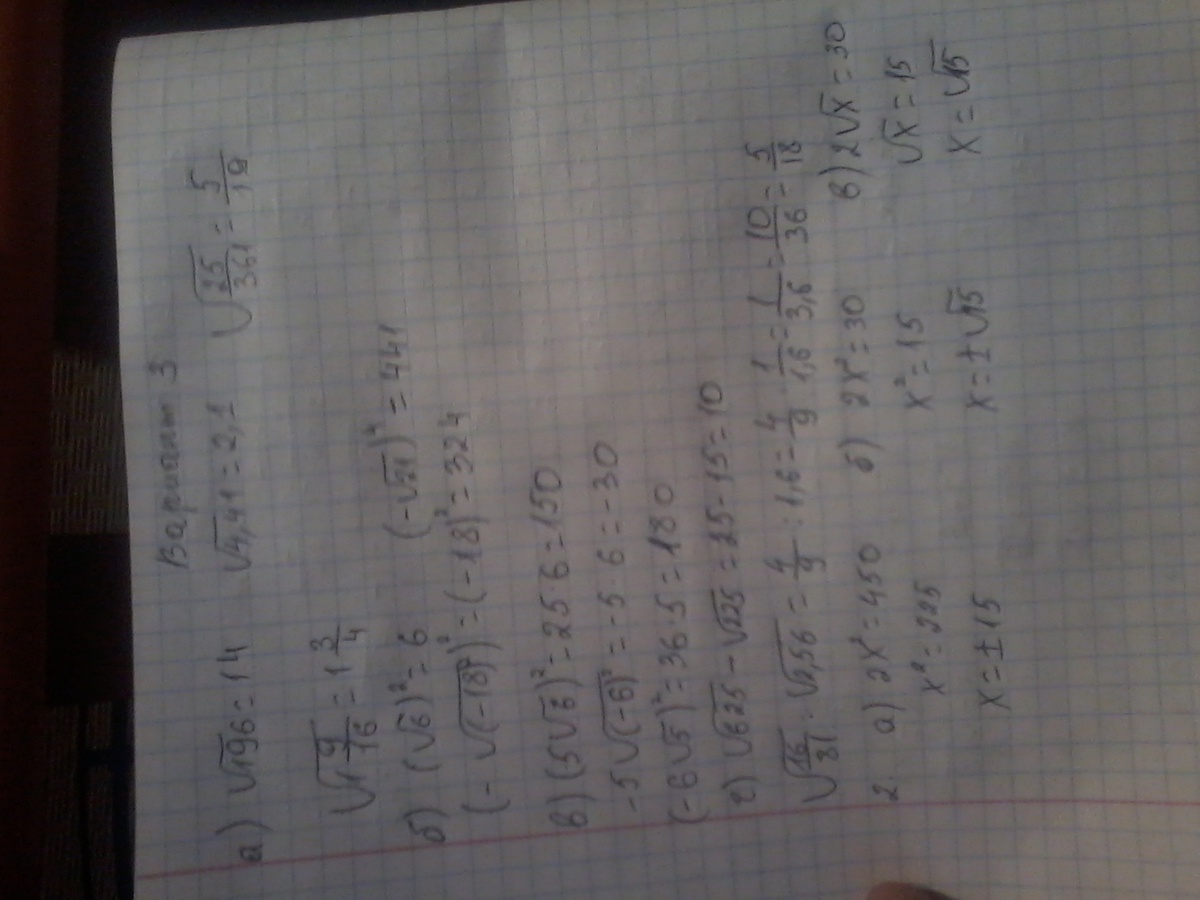 Вариант 3
а) √196 = 14 √4,41 = 2,1 √(25/361) = 5/19
√(1 9/16) = 1 3/4
б) (√6)² = 6 (-√21)⁴ = 441
(-√(-18)²)² = (-18)² = 324
в) (5√6)² = 25·6 = 150
-5√(-6)² = -5·6 = -30
(-6√5)² = 36·5 = 180
г) √625 - √225 = 25 - 15 = 10
√(16/81) : √2,56 = 4/9 : 1,6 = 4/9 · 1/1,6 = 1/3,6 = 10/36 = 5/18
2. а) 2x² = 450 б) 2x² = 30 в) 2√x = 30
x² = 225 x² = 15 √x = 15
x = ±15 x = ±√15 x = √15